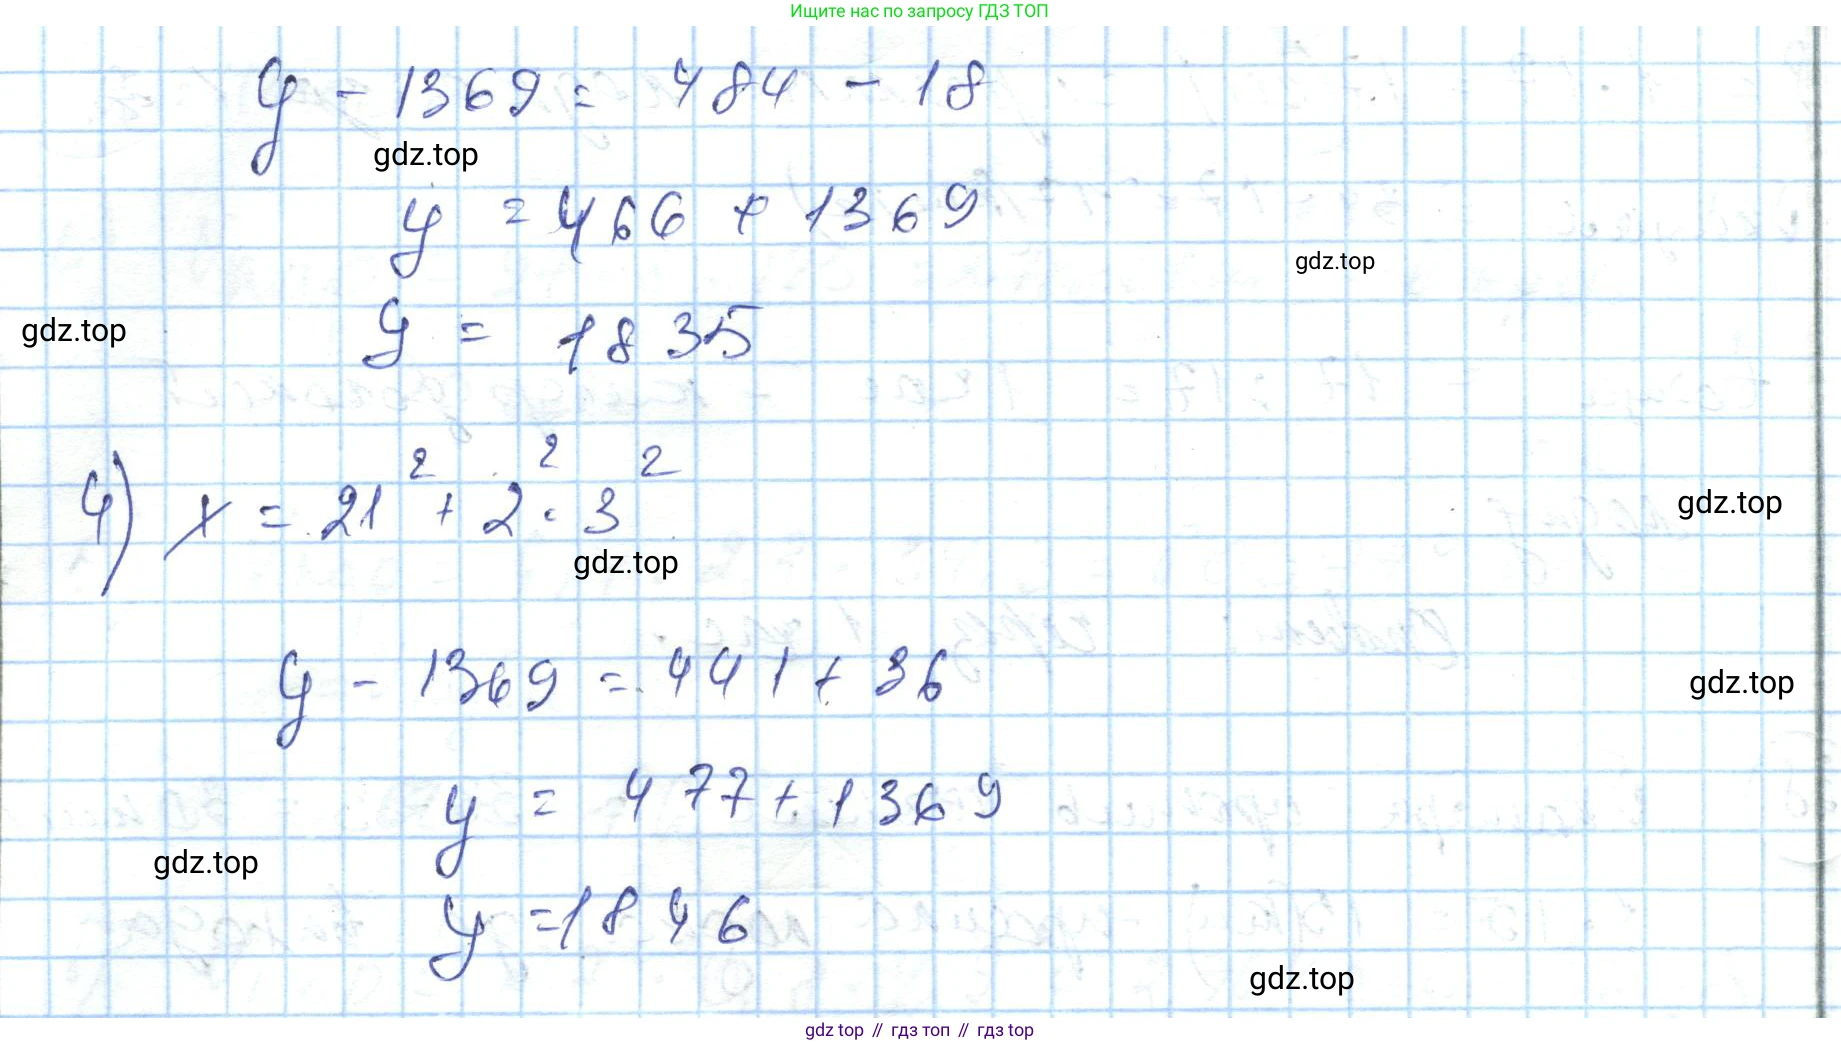 Ищите нас по запросу ГДЗ ТОП
y - 1369 = 484 - 18
gdz.top
y = 466 + 1369
gdz.top
y = 1835
gdz.top
4) x = 21² + 2² · 3²
gdz.top
gdz.top
y - 1369 = 441 + 36
gdz.top
y = 477 + 1369
gdz.top
y = 1846
gdz.top
gdz top // гдз топ // гдз top